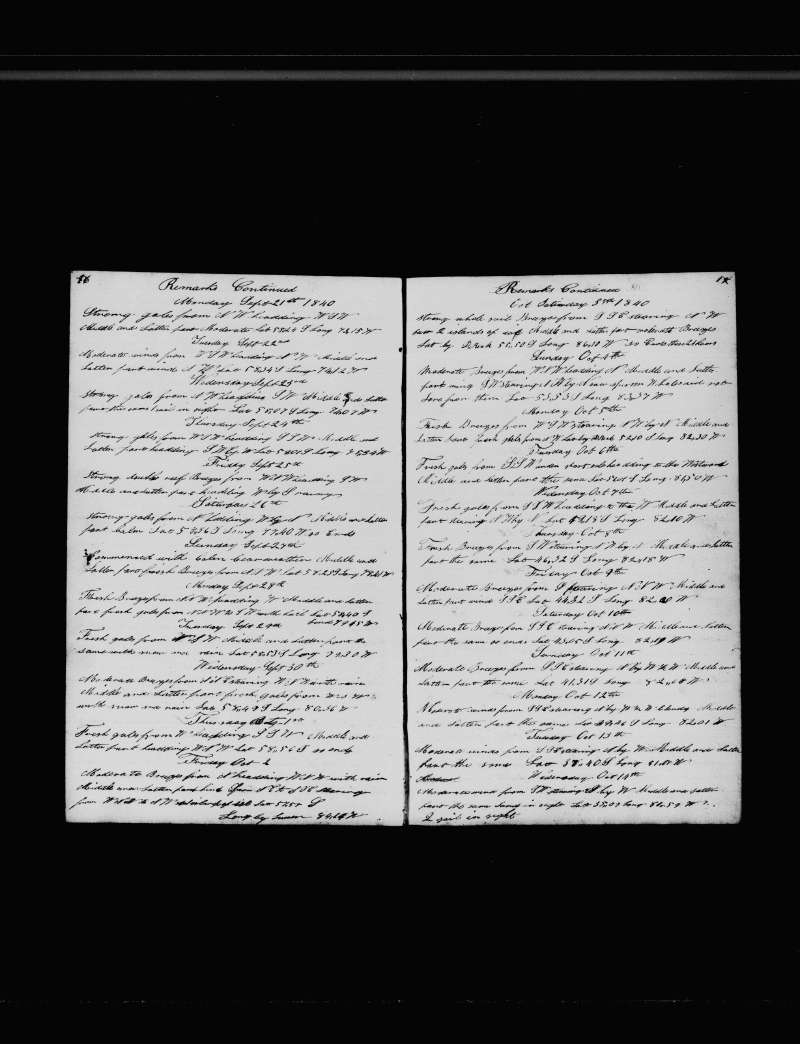 16
Remarks Continued
Monday Sept 21st 1840
Strong gales from N W heading W S W
Middle and Latter part Moderate Lat 58.24 S Long 72.15 W
Tuesday Sept 22nd
Moderate wind from W S W heading N W Middle and
Latter part wind N W Lat 58.24 S Long 74.12 W
Wednesday Sept 23rd
Strong gales from N W heading S W Middle and Latter
part the same sail in sight Lat 58.07 S Long 74.07 W
Thursday Sept 24th
Strong gales from W S W heading S S W Middle and
Latter part heading S W by W Lat
Friday Sept 25th
Strong double reef Breezes from W S W heading S W
Middle and latter part heading W by S
Saturday 26th
Strong gales from N heading W by N Middle and Latter
part calm Lat 58.56 S Long 77.40 W so Ends
Sunday Sept 27th
Commenced with calm Clear weather Middle and
Latter part fresh Breezes from N N W Lat 58.25 S Long
Monday Sept 28th
Fresh Breezes from N N W heading W Middle and latter
part fresh gales from N N W to S W with hail Lat 58.40 S
Long 79.45 W
Tuesday Sept 29th
Fresh gales from W S W Middle and Latter part the
same with snow and rain Lat 58.53 S Long 79.30 W
Wednesday Sept 30th
Moderate Breezes from S S E steering W N W with rain
Middle and Latter part fresh gales from W
with snow and rain Lat 58.49 S Long 80.56 W
Thursday Oct 1st
Fresh gales from W heading S S W Middle and
Latter part heading W S W Lat 58.56 S so ends
Friday Oct 2
Moderate Breezes from N heading W N W with rain
Middle and Latter part wind from S E to S S E steering
from W N W to N W Lat 57.50 S
Long by Lunar 84.14 W
17
Remarks Continued
Oct Saturday 3rd 1840
Strong whole sail Breezes from S S E steering N W
saw 2 islands of ice Middle and latter part moderate Breezes
Lat by D Reck 55.50 S Long 86.10 W so Ends these 24 hours
Sunday Oct 4th
Moderate Breezes from W S W heading N Middle and Latter
part wind S W steering N W by N saw sperm Whales and not
Lore from them Lat 53.53 S Long
Monday Oct 5th
Fresh Breezes from W S W steering N W by N Middle and
Latter part fresh gales from W Lat by D Reck 52.10 S Long 82.30 W
Tuesday Oct 6th
Fresh gales from S S W under short sail heading to the Westward
Middle and latter part the same Lat 50.01 S Long 84.50 W
Wednesday Oct 7th
Fresh gales from S S W heading to the W Middle and Latter
part steering N W by N Lat 49.18 S Long 82.10 W
Thursday Oct 8th
Fresh Breezes from S W steering N W by N Middle and latter
part the same Lat 46.32 S Long 82.15 W
Friday Oct 9th
Moderate Breezes from S steering N N W Middle and
Latter part wind S S E Lat 44.32 S Long 82.20 W
Saturday Oct 10th
Moderate Breezes from S S E steering N N W Middle and Latter
part the same so ends Lat 43.05 S Long 82.19 W
Sunday Oct 11th
Moderate Breezes from S S E steering N by W ½ W Middle and
Latter part the same Lat 41.31 S Long 82.08 W
Monday Oct 12th
Moderate winds from S S E steering N by W ½ W Cloudy Middle
and Latter part the same Lat 39.46 S Long 82.01 W
Tuesday Oct 13th
Moderate winds from S S E steering N by W Middle and Latter
part the same Lat 38.40 S Long 81.51 W
Wednesday Oct 14th
Moderate wind from S W steering N by W Middle and Latter
part the same Lat 37.09 Long 81.59 W
2 sail in sight